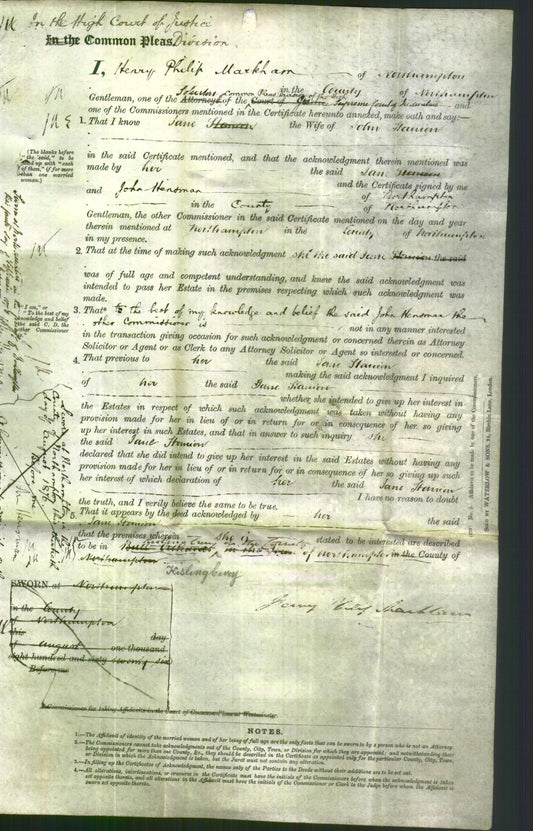 In the High Court of Justice
In the Common Pleas Division.
I, Henry Philip Markham of Northampton
in the County of Northampton
Gentleman, one of the Attorneys of the Court of Common Pleas Supreme Court and
one of the Commissioners mentioned in the Certificate hereunto annexed, make oath and say:—
1. That I know Jane the Wife of John
in the said Certificate mentioned, and that the acknowledgment therein mentioned was
made by her the said Jane
and John Hensman and the Certificate signed by me
of Northampton
in the County of Northampton
Gentleman, the other Commissioner in the said Certificate mentioned on the day and year
therein mentioned at Northampton in the County of Northampton
in my presence.
2. That at the time of making such acknowledgment she the said Jane the said
was of full age and competent understanding, and knew the said acknowledgment was
intended to pass her Estate in the premises respecting which such acknowledgment was
made.
3. That to the best of my knowledge and belief the said John Hensman the
other Commissioner is not in any manner interested
in the transaction giving occasion for such acknowledgment or concerned therein as Attorney
Solicitor or Agent or as Clerk to any Attorney Solicitor or Agent so interested or concerned.
4. That previous to her the said Jane
making the said acknowledgment I inquired
of her the said Jane
whether she intended to give up her interest in
the Estates in respect of which such acknowledgment was taken without having any
provision made for her in lieu of or in return for or in consequence of her so giving
up her interest in such Estates, and that in answer to such inquiry she
the said Jane
declared that she did intend to give up her interest in the said Estates without having any
provision made for her in lieu of or in return for or in consequence of her so giving up such
her interest of which declaration of her the said Jane
I have no reason to doubt
the truth, and I verily believe the same to be true.
5. That it appears by the deed acknowledged by her the said
Jane
that the premises wherein she is stated to be interested are described
to be in the of Northampton in the County of
Northampton
Kislingbury
SWORN at Northampton
in the County
of Northampton
this day
of August one thousand
eight hundred and seventy six
Before me
A Commissioner for taking Affidavits in the Court of Common Pleas at Westminster.
Henry Philip Markham
(The blanks before
"the said," to be
filled up with "each
of them," if for more
than one married
woman.)
"I am," or
"To the best of my
knowledge and belief
the said C. D., the
other Commissioner
No. 3. Affidavit to be made by one of the Commissioners.
SOLD BY WATERLOW & SONS, London.
NOTES.
1.—The Affidavit of identity of the married woman and of her being of full age are the only facts that can be sworn to by a person who is not an Attorney.
2.—The Commissioners cannot take acknowledgments out of the County, City, Town, or Division for which they are appointed; and notwithstanding their
being appointed for more than one County, &c., they should be described in the Certificate as appointed only for the particular County, City, Town,
or Division in which the Acknowledgment is taken, but the Jurat must not contain any alteration.
3.—In filling up the Certificates of Acknowledgment, the names only of the Parties to the Deeds without their additions are to be set out.
4.—All alterations, interlineations, or erasures in the Certificate must have the initials of the Commissioners before whom the acknowledgment is taken
set opposite thereto, and all alterations in the Affidavit must have the initials of the Commissioner or Clerk to the Judge before whom the Affidavit is
sworn set opposite thereto.